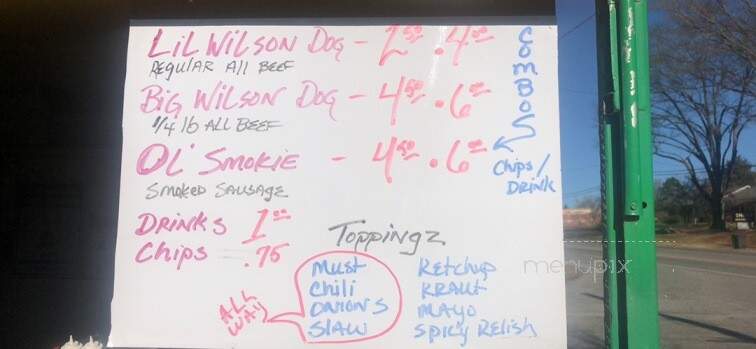 LiL WilSON DOG - 2.50 . 4.00
REgULAR All BEEF
BiG WilSON DOG - 4.50 . 6.00
1/4 lb ALL BEEF
OL' SMOKiE - 4.50 . 6.00
SMOKED SAUSAGE
COMBOS
Chips/
DRiNK
DRiNKS 1.00
Chips .75
ToppiNgz
MUST
Chili
ONiONS
SlAW
ALL
WAY
KETchup
KRAUt
MAYO
Spicy RElish
menupix